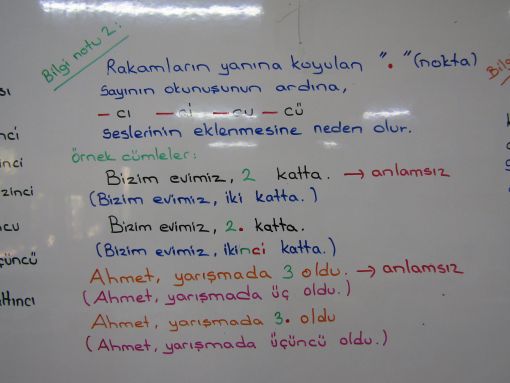 Bilgi notu 2:
Rakamların yanına koyulan "." (nokta)
sayının okunuşunun ardına,
– cı – ci – cu – cü
seslerinin eklenmesine neden olur.
örnek cümleler:
Bizim evimiz, 2 katta. → anlamsız
(Bizim evimiz, iki katta.)
Bizim evimiz, 2. katta.
(Bizim evimiz, ikinci katta.)
Ahmet, yarışmada 3 oldu. → anlamsız
(Ahmet, yarışmada üç oldu.)
Ahmet, yarışmada 3. oldu
(Ahmet, yarışmada üçüncü oldu.)